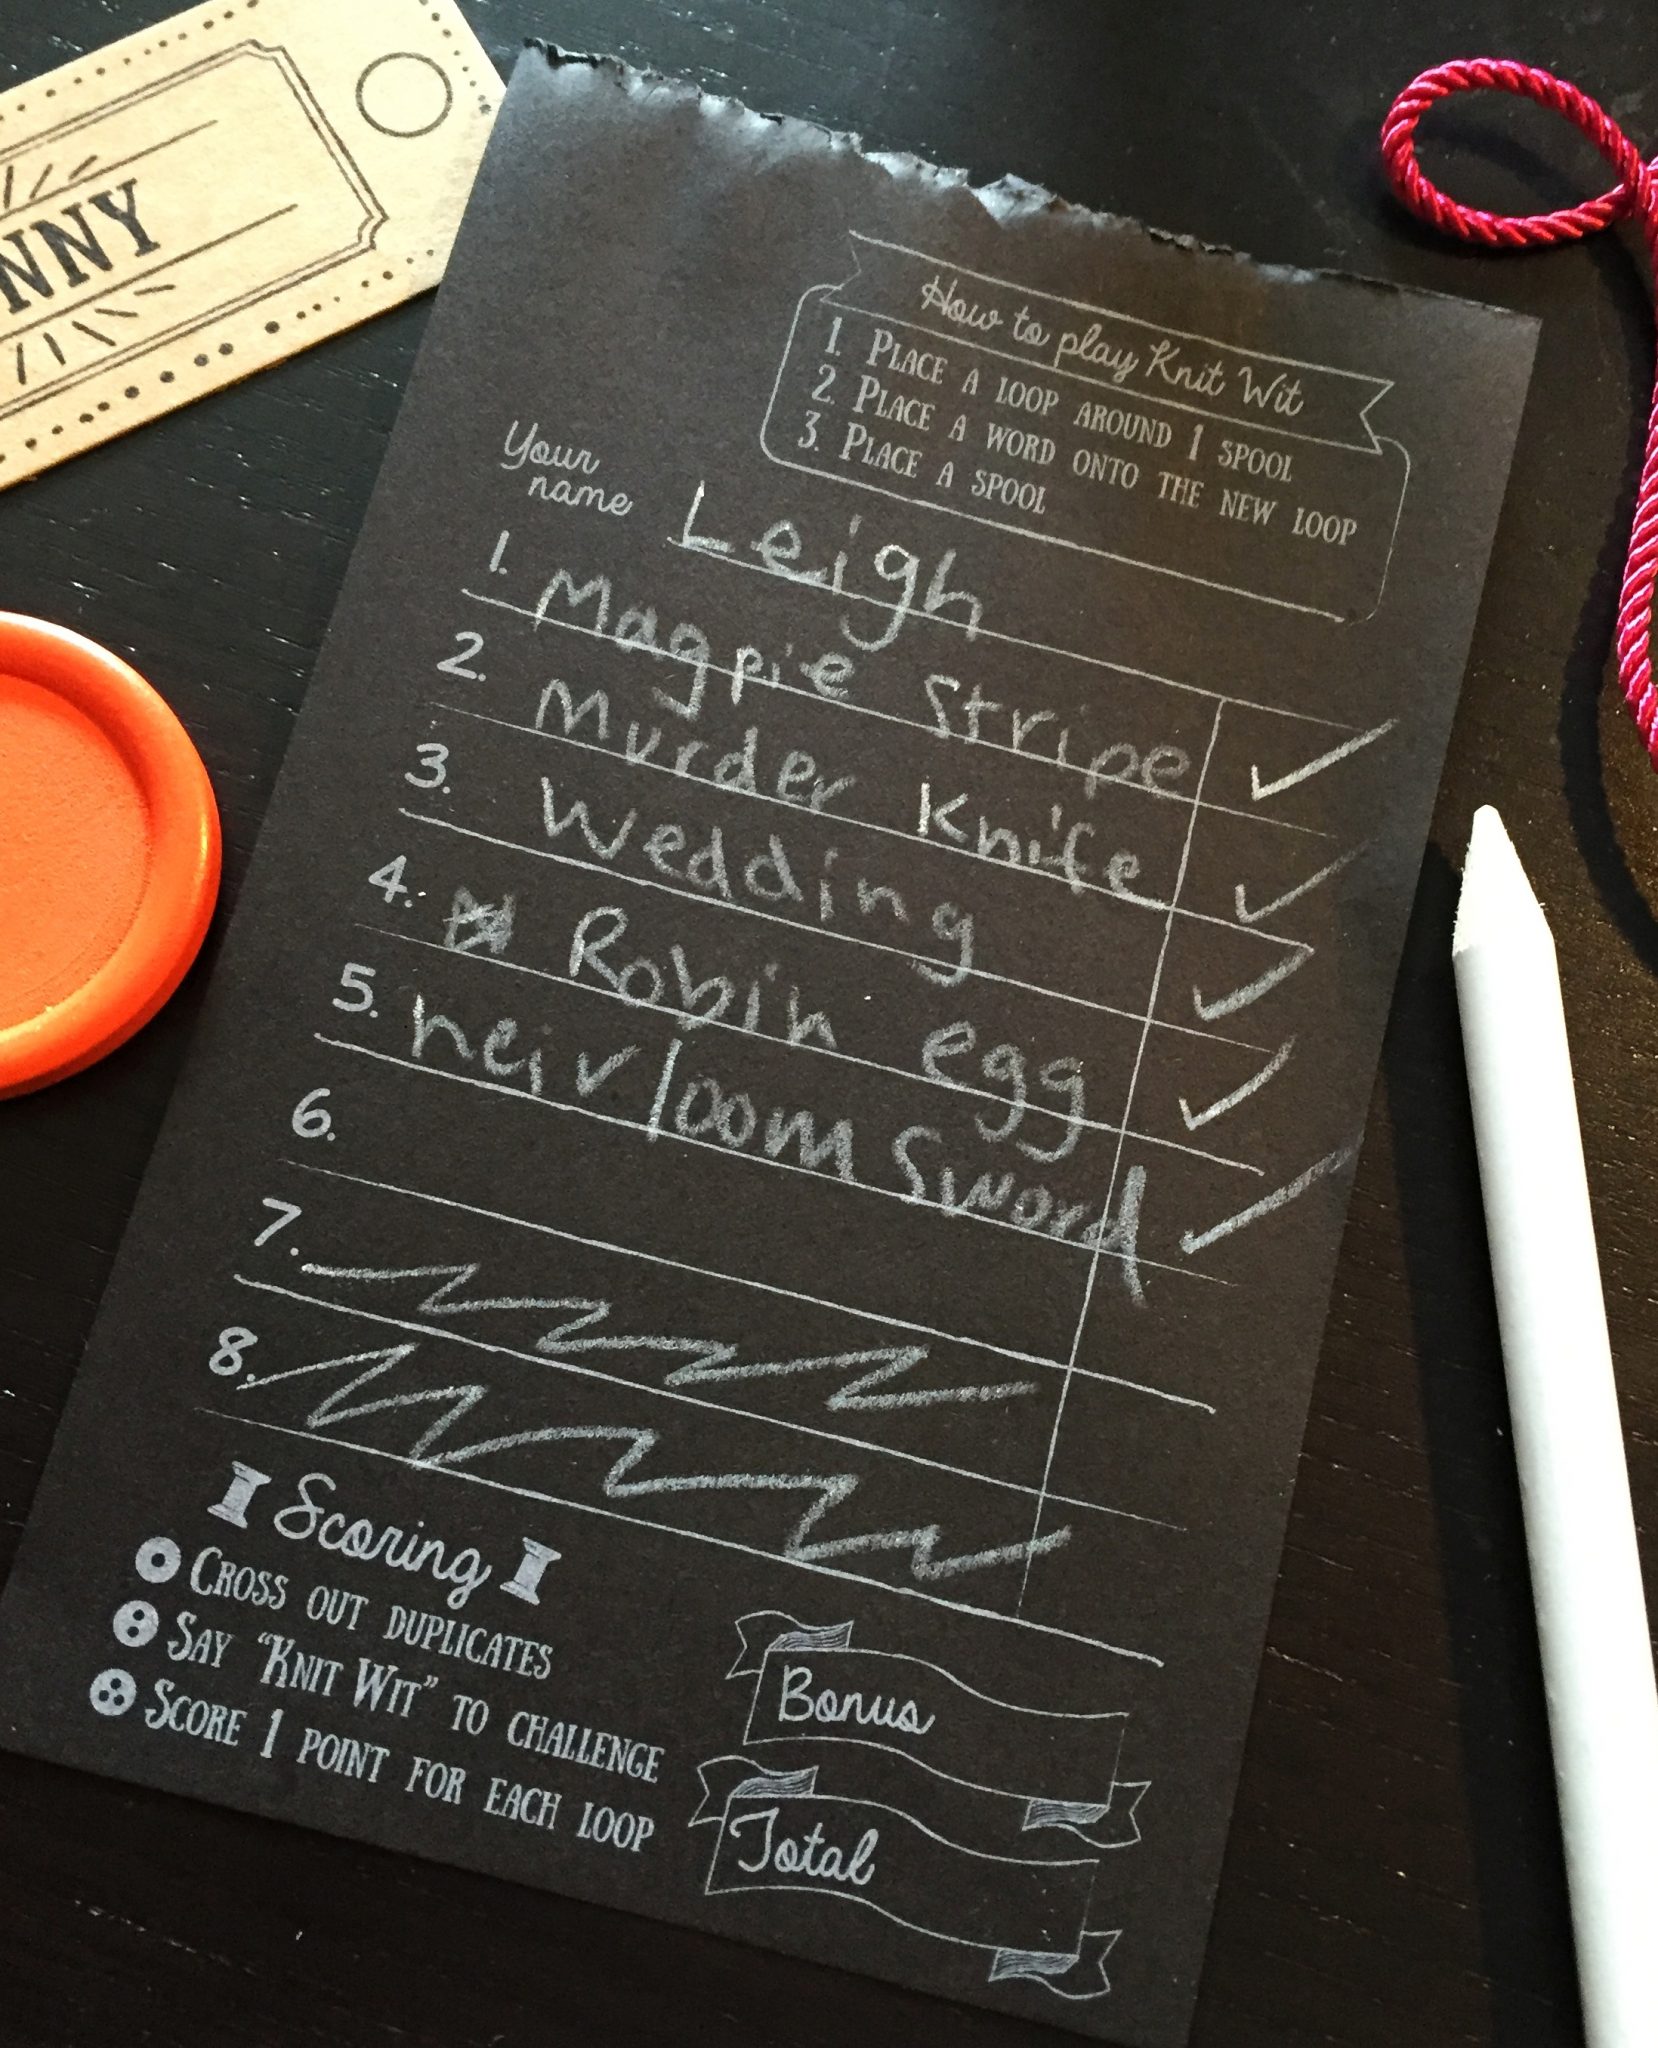 NNY
How to play Knit Wit
1. PLACE A LOOP AROUND 1 SPOOL
2. PLACE A WORD ONTO THE NEW LOOP
3. PLACE A SPOOL
Your name Leigh
1. Magpie Stripe ✓
2. Murder Knife ✓
3. Wedding ✓
4. Robin egg ✓
5. heirloom Sword ✓
6.
7.
8.
Scoring
CROSS OUT DUPLICATES
SAY "KNIT WIT" TO CHALLENGE
SCORE 1 POINT FOR EACH LOOP
Bonus
Total